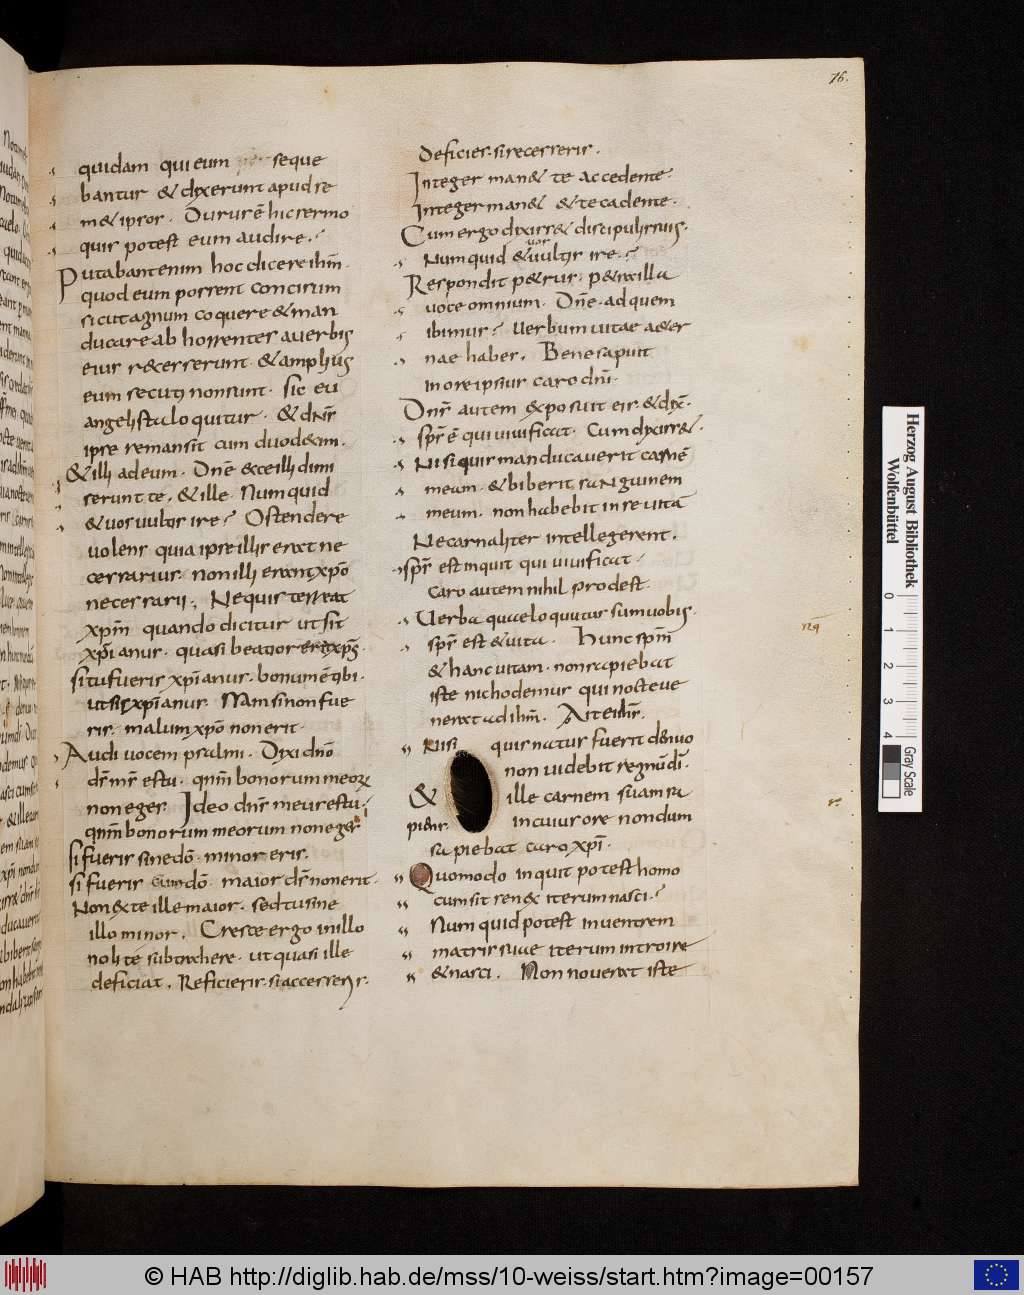 76.
quidam qui eum seque
bantur & dixerunt apud se
m&ipsos. Durus ē hic sermo
quis potest eum audire.
Putabant enim hoc dicere ihm̄.
quod eum possent concisum
sicut agnum coquere & man
ducare ab horrentes a verbis
eius recesserunt. & amplius
eum secuti non sunt. Sic eu
angelista loquitur. & dn̄s
ipse remansit cum duodecim.
& illi ad eum. Dn̄e ecce illi dimi
serunt te. & ille. Numquid
& vos vultis ire? Ostendere
volens quia ipse illis erat ne
cessarius. non illi erant xp̄o
necessarii. Ne quis terreat
xp̄m quando dicitur ut sit
xp̄ianus. quasi beatior erit xp̄s.
si tu fueris xp̄ianus. bonum ē tibi.
ut sis xp̄ianus. Nam si non fue
ris. malum xp̄o non erit.
Audi vocem psalmi. Dixi dn̄o
ds̄ ms̄ es tu. qn̄m bonorum meoꝝ
non eges. Ideo dn̄s meus es tu.
qn̄m bonorum meorum non eges
si fueris sine dō. minor eris.
si fueris cum dō. maior ds̄ non erit.
Non ex te ille maior. sed tu sine
illo minor. Cresce ergo in illo
noli te subtrahere. ut quasi ille
deficiat. Reficieris. si accesseris.
Deficies. si recesseris.
Integer man& te accedente.
Integer man& & te cadente.
Cum ergo dixiss& discipulis suis.
Numquid & vos vultis ire?
Respondit p&rus. p&ra illa
voce omnium. Dn̄e. ad quem
ibimus? Verbum vitae aeter
nae habes. Bene sapuit
in ore ipsius caro dn̄i.
Dn̄s autem exposuit eis. & dix̄.
sps̄ ē qui vivificat. Cum dixiss&.
Nisi quis manducaverit carnē
meam. & biberit sanguinem
meum. non habebit in se vitā
Ne carnaliter intellegerent.
sps̄ est inquit qui vivificat.
caro autem nihil prodest.
Verba quae locutus sum vobis.
sps̄ est & vita. Hunc spm̄
& hanc vitam. non sapiebat
iste nichodemus qui nocte ve
nerat ad ihm̄. Ait ei ihs̄.
Nisi quis natus fuerit denuo
non videbit regnū di̅.
& ille carnem suam sa
piens. in cuius ore nondum
sapiebat caro xp̄i.
Quomodo inquit potest homo
cum sit senex iterum nasci.
Numquid potest in ventrem
matris suae iterum introire
& nasci. Non noverat iste
Herzog August Bibliothek
Wolfenbüttel
0 1 2 3 4
Gray Scale
© HAB http://diglib.hab.de/mss/10-weiss/start.htm?image=00157